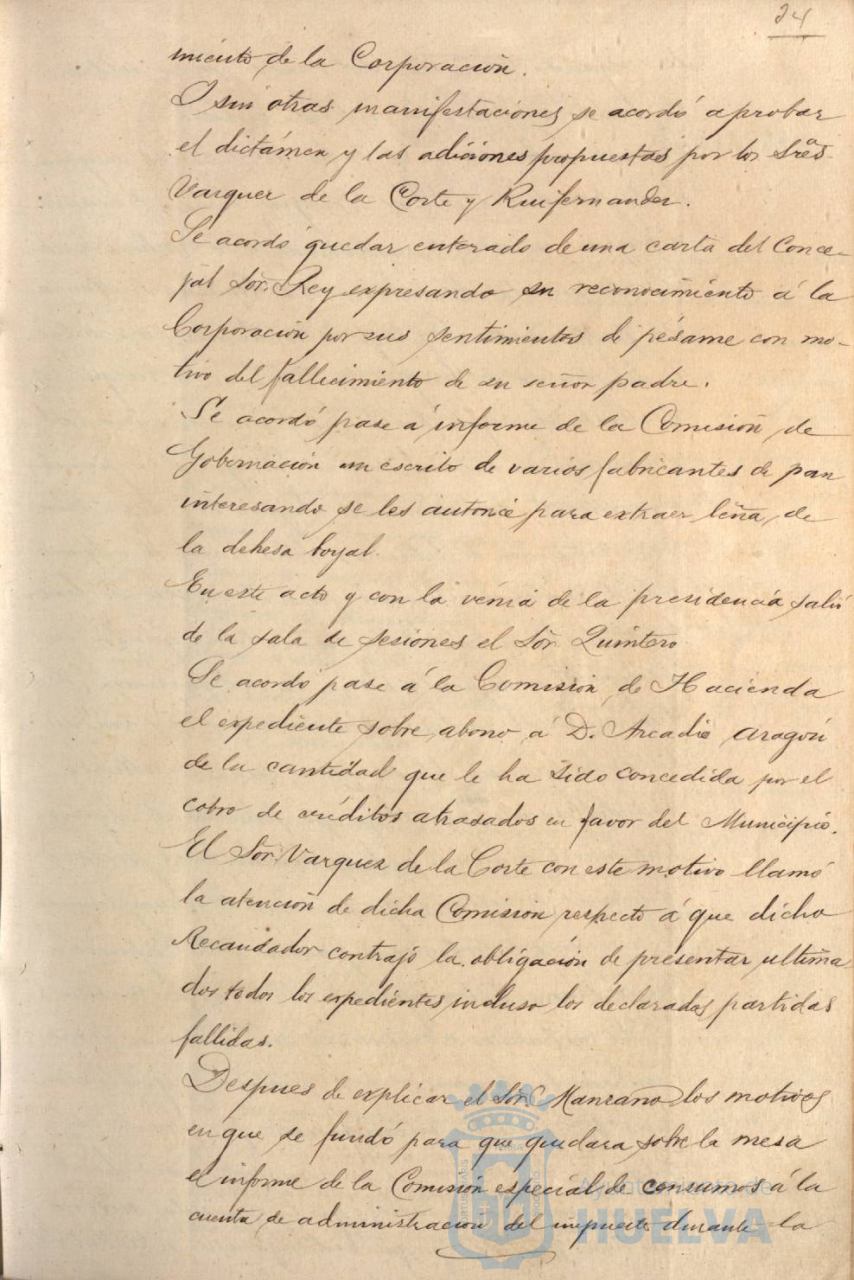 24
miento de la Corporación.
Y sin otras manifestaciones se acordó aprobar
el dictámen y las adiciones propuestas por los Sres
Vazquez de la Corte y Ruifernandez.
Se acordó quedar enterado de una carta del Conce-
jal Sor. Rey expresando su reconocimiento á la
Corporación por sus sentimientos de pésame con mo-
tivo del fallecimiento de su señor padre.
Se acordó pase á informe de la Comisión de
Gobernación un escrito de varios fabricantes de pan
interesando se les autorice para extraer leña de
la dehesa boyal.
En este acto y con la venia de la presidencia salió
de la sala de sesiones el Sor. Quintero.
Se acordó pase á la Comisión de Hacienda
el expediente sobre abono á D. Arcadio Aragón
de la cantidad que le ha sido concedida por el
cobro de créditos atrasados en favor del Municipio.
El Sor. Vazquez de la Corte con este motivo llamó
la atención de dicha Comisión respecto á que dicho
Recaudador contrajo la obligación de presentar ultima-
dos todos los expedientes, incluso los declarados partidas
fallidas.
Despues de explicar el Sor. Manzano los motivos
en que se fundó para que quedara sobre la mesa
el informe de la Comisión especial de consumos á la
cuenta de administración del impuesto durante la
Ayuntamiento de
HUELVA